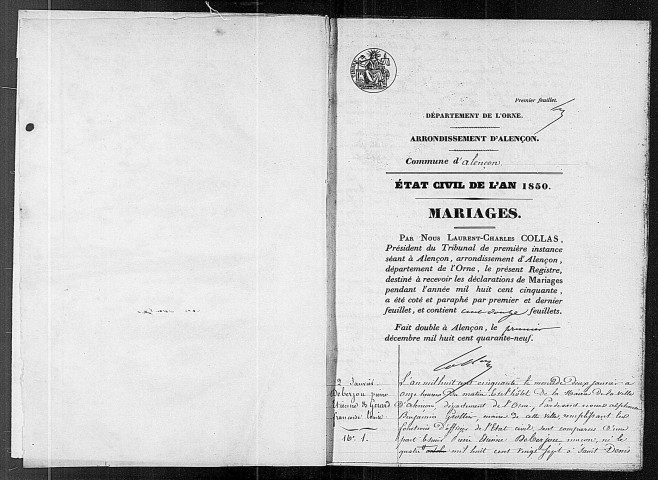 Premier feuillet.
DÉPARTEMENT DE L'ORNE.
ARRONDISSEMENT D'ALENÇON.
Commune d'alençon
ÉTAT CIVIL DE L'AN 1850.
MARIAGES.
PAR NOUS LAURENT-CHARLES COLLAS,
Président du Tribunal de première instance
séant à Alençon, arrondissement d'Alençon,
département de l'Orne, le présent Registre,
destiné à recevoir les déclarations de Mariages
pendant l'année mil huit cent cinquante,
a été coté et paraphé par premier et dernier
feuillet, et contient cent douze feuillets.
Fait double à Alençon, le premier
décembre mil huit cent quarante-neuf.
2 Janvier
Deberzou pierre
Etienne & Gerard
francoise Louise
No 1.
L'an mil huit cent cinquante le mercredi deux janvier à
onze heures du matin à l'hôtel de la Mairie de la ville
d'Alençon, département de l'Orne, Pardevant nous alphonse
Benjamin maire de cette ville, remplissant les
fonctions d'officier de l'Etat civil, sont comparus D'une
part le sieur Pierre Etienne Deberzou maçon, né le
quatre mil huit cent vingt sept à Saint Denis